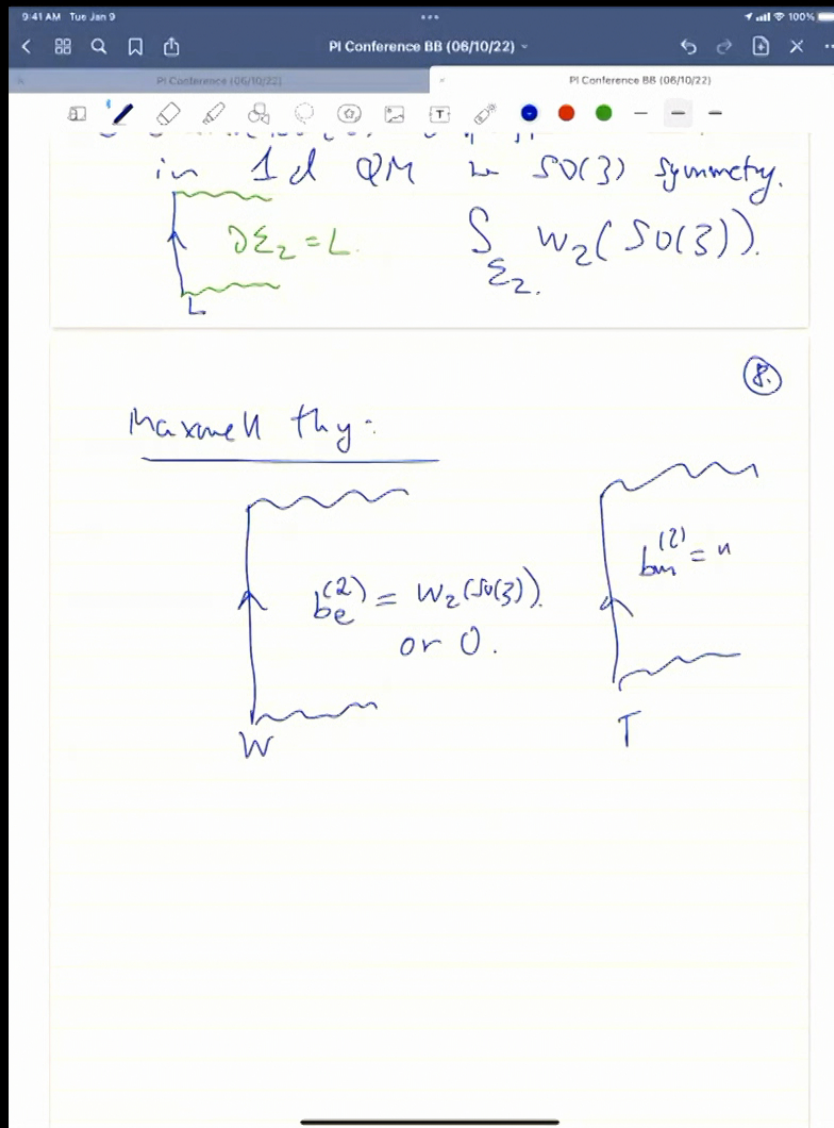 9:41 AM Tue Jan 9
100%
PI Conference BB (06/10/22)
PI Conference (06/10/22)
PI Conference BB (06/10/22)
in 1d QM w SO(3) symmetry.
∂Σ₂ = L.
∫_Σ₂. w₂(SO(3)).
L
8.
Maxwell thy:
b_e^(2) = w₂(SO(3)).
or 0.
W
b_m^(2) = "
T